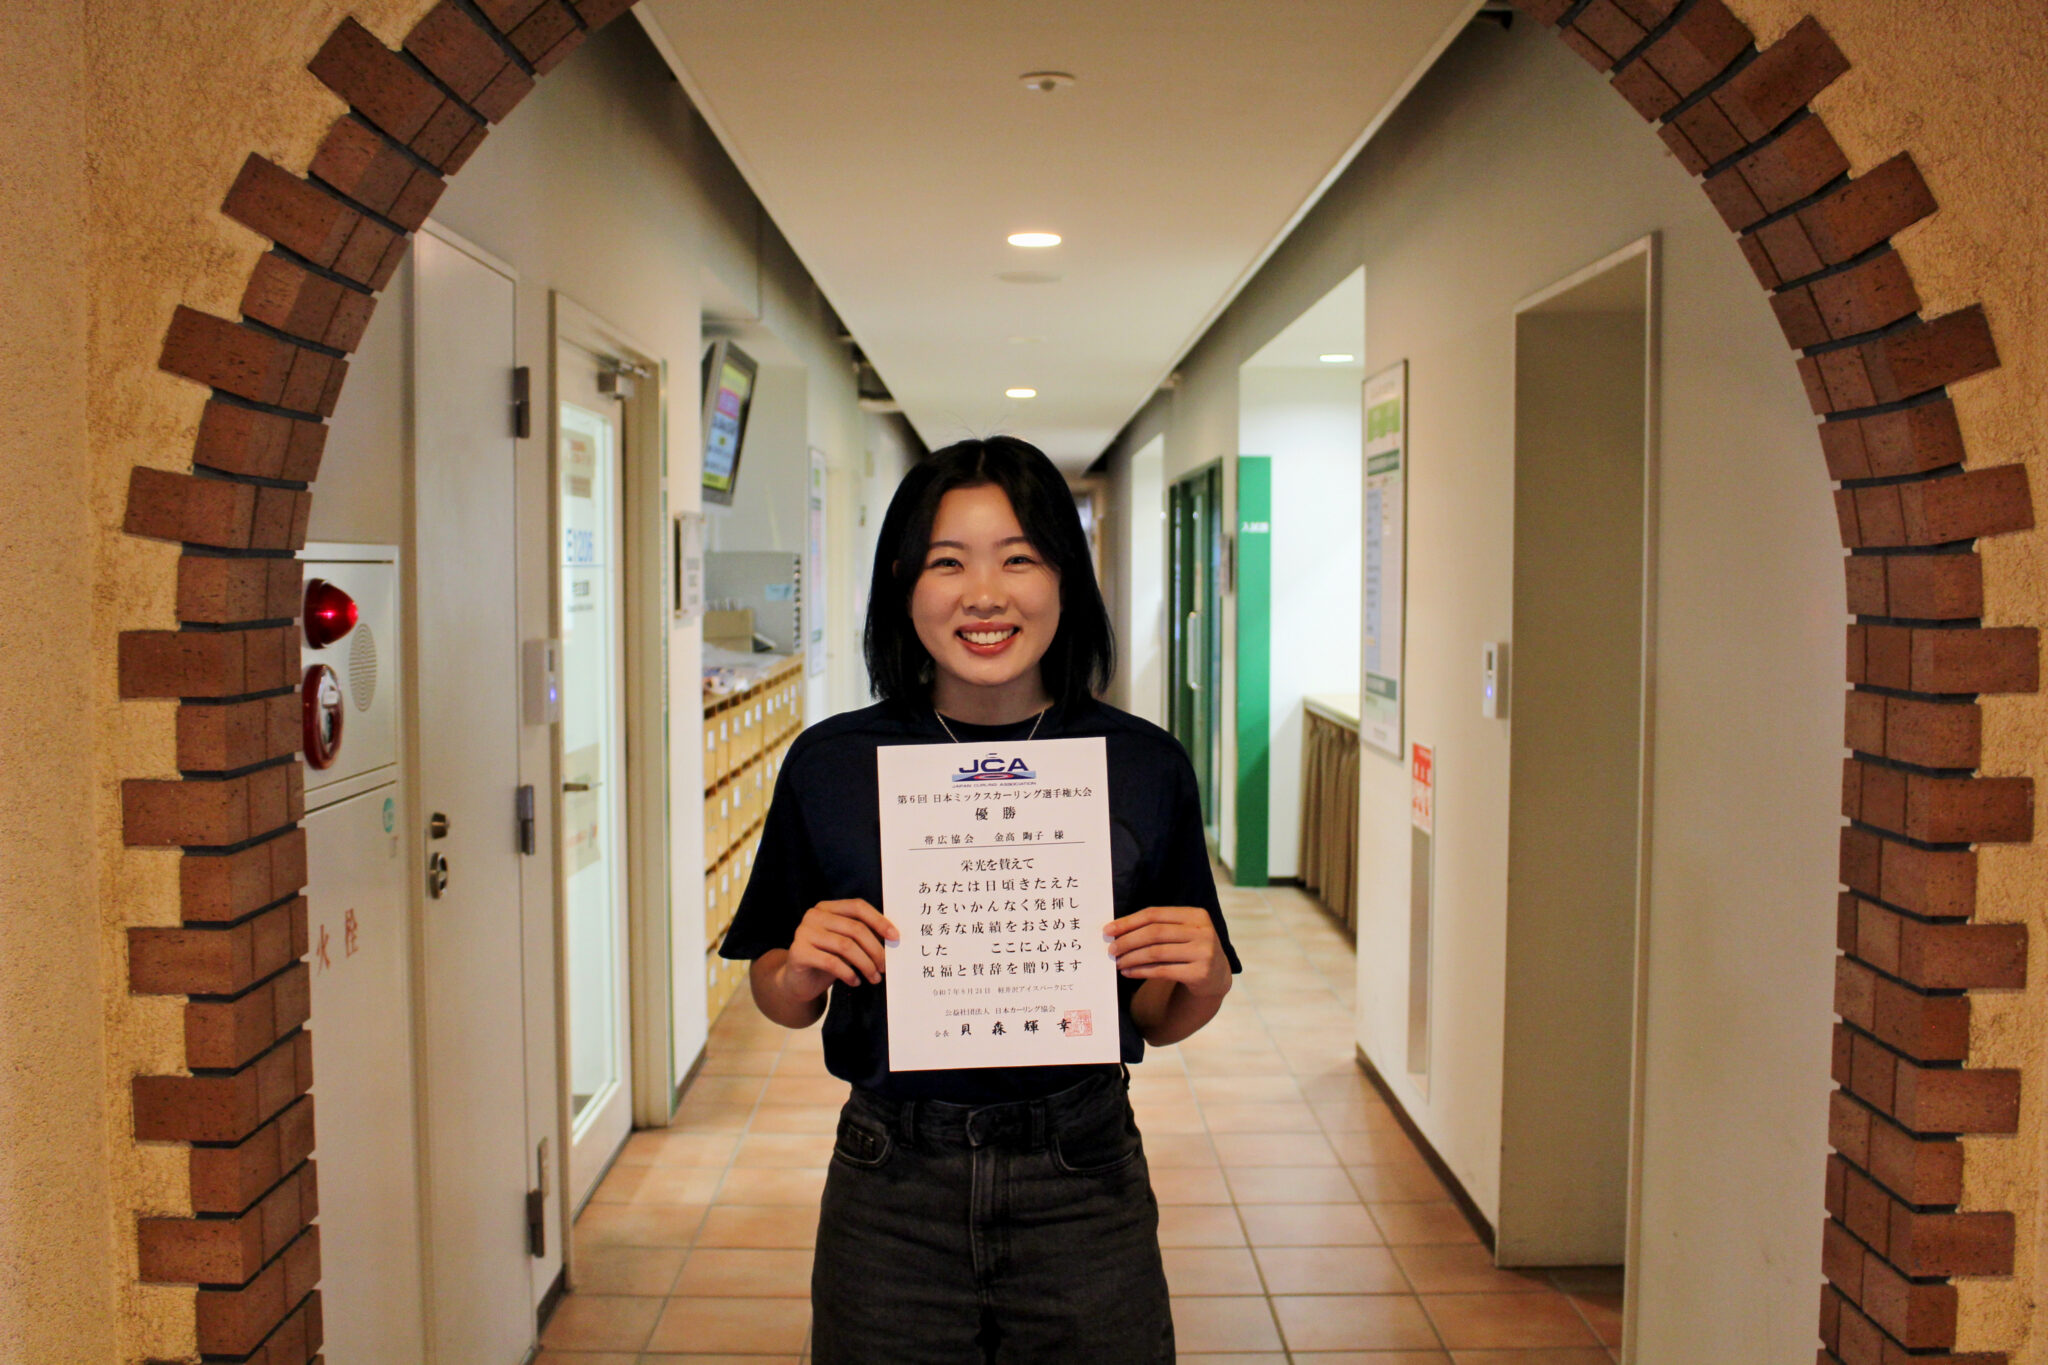 JCA
JAPAN CURLING ASSOCIATION
第6回 日本ミックスカーリング選手権大会
優勝
帯広協会 金高 陶子 様
栄光を賛えて
あなたは日頃きたえた
力をいかんなく発揮し
優秀な成績をおさめま
した ここに心から
祝福と賛辞を贈ります
令和7年8月24日 軽井沢アイスパークにて
公益社団法人 日本カーリング協会
会長 貝森輝幸
火栓
E1206